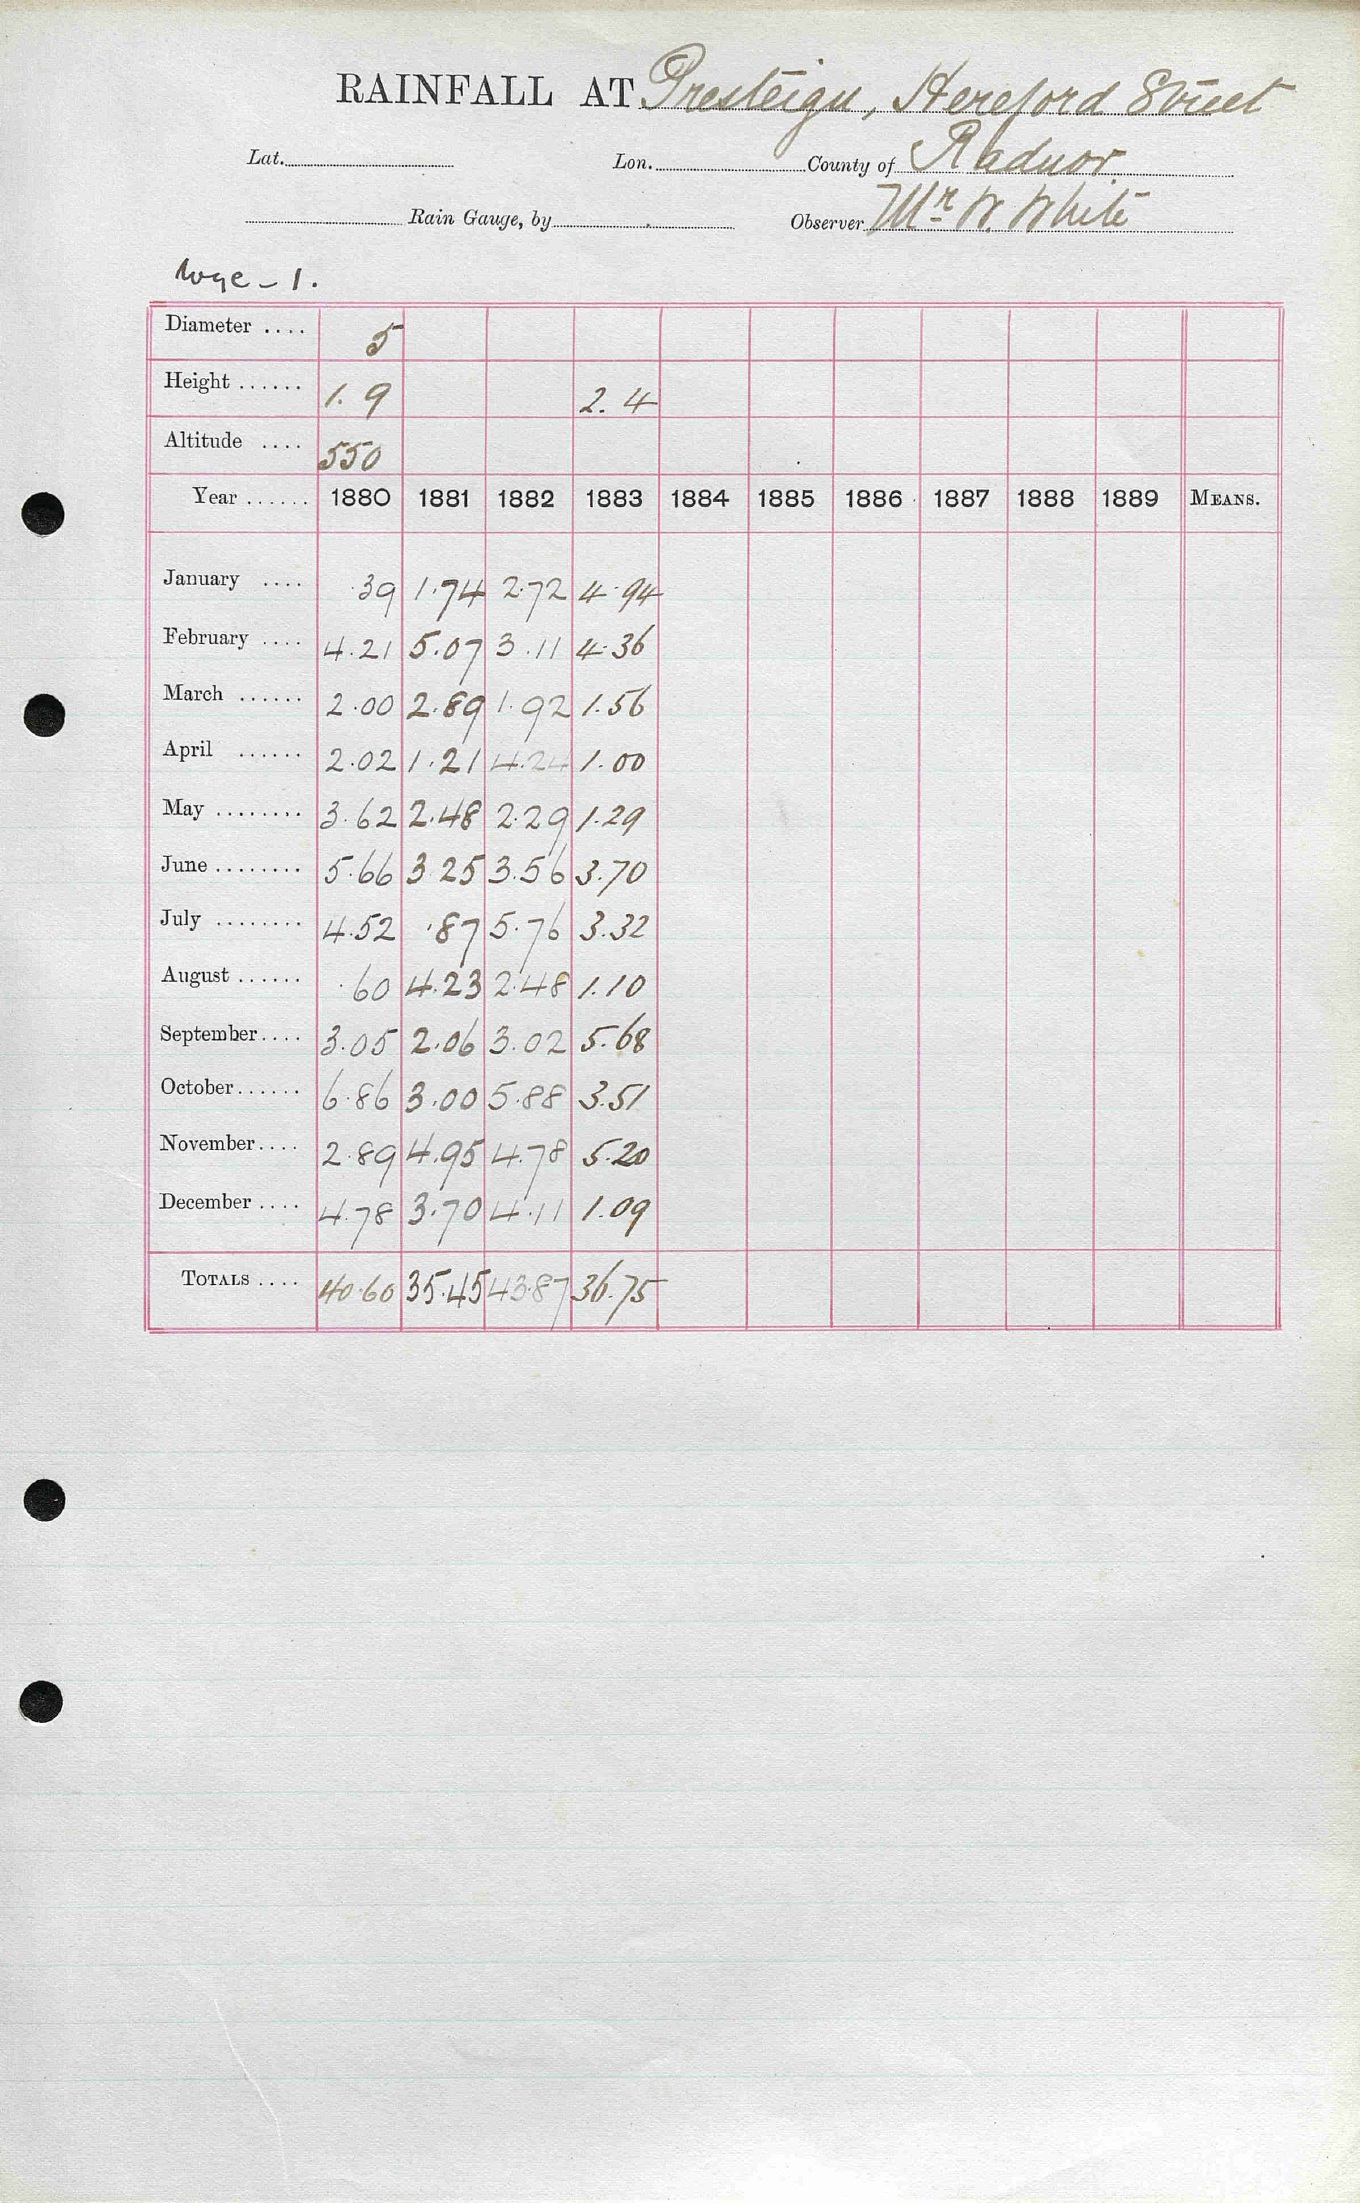 RAINFALL AT Presteign, Hereford Street
Lat. Lon. County of Radnor
Rain Gauge, by Observer Mr W. White
Wye - 1.
Diameter .... 5
Height ...... 1. 9 2. 4
Altitude .... 550
Year ...... 1880 1881 1882 1883 1884 1885 1886 1887 1888 1889 MEANS.
January .... .39 1.74 2.72 4.94
February .... 4.21 5.07 3.11 4.36
March ...... 2.00 2.89 1.92 1.56
April ...... 2.02 1.21 4.24 1.00
May ........ 3.62 2.48 2.29 1.29
June ........ 5.66 3.25 3.56 3.70
July ........ 4.52 .87 5.76 3.32
August ...... .60 4.23 2.48 1.10
September .... 3.05 2.06 3.02 5.68
October ...... 6.86 3.00 5.88 3.51
November .... 2.89 4.95 4.78 5.20
December .... 4.78 3.70 4.11 1.09
TOTALS .... 40.60 35.45 43.87 36.75